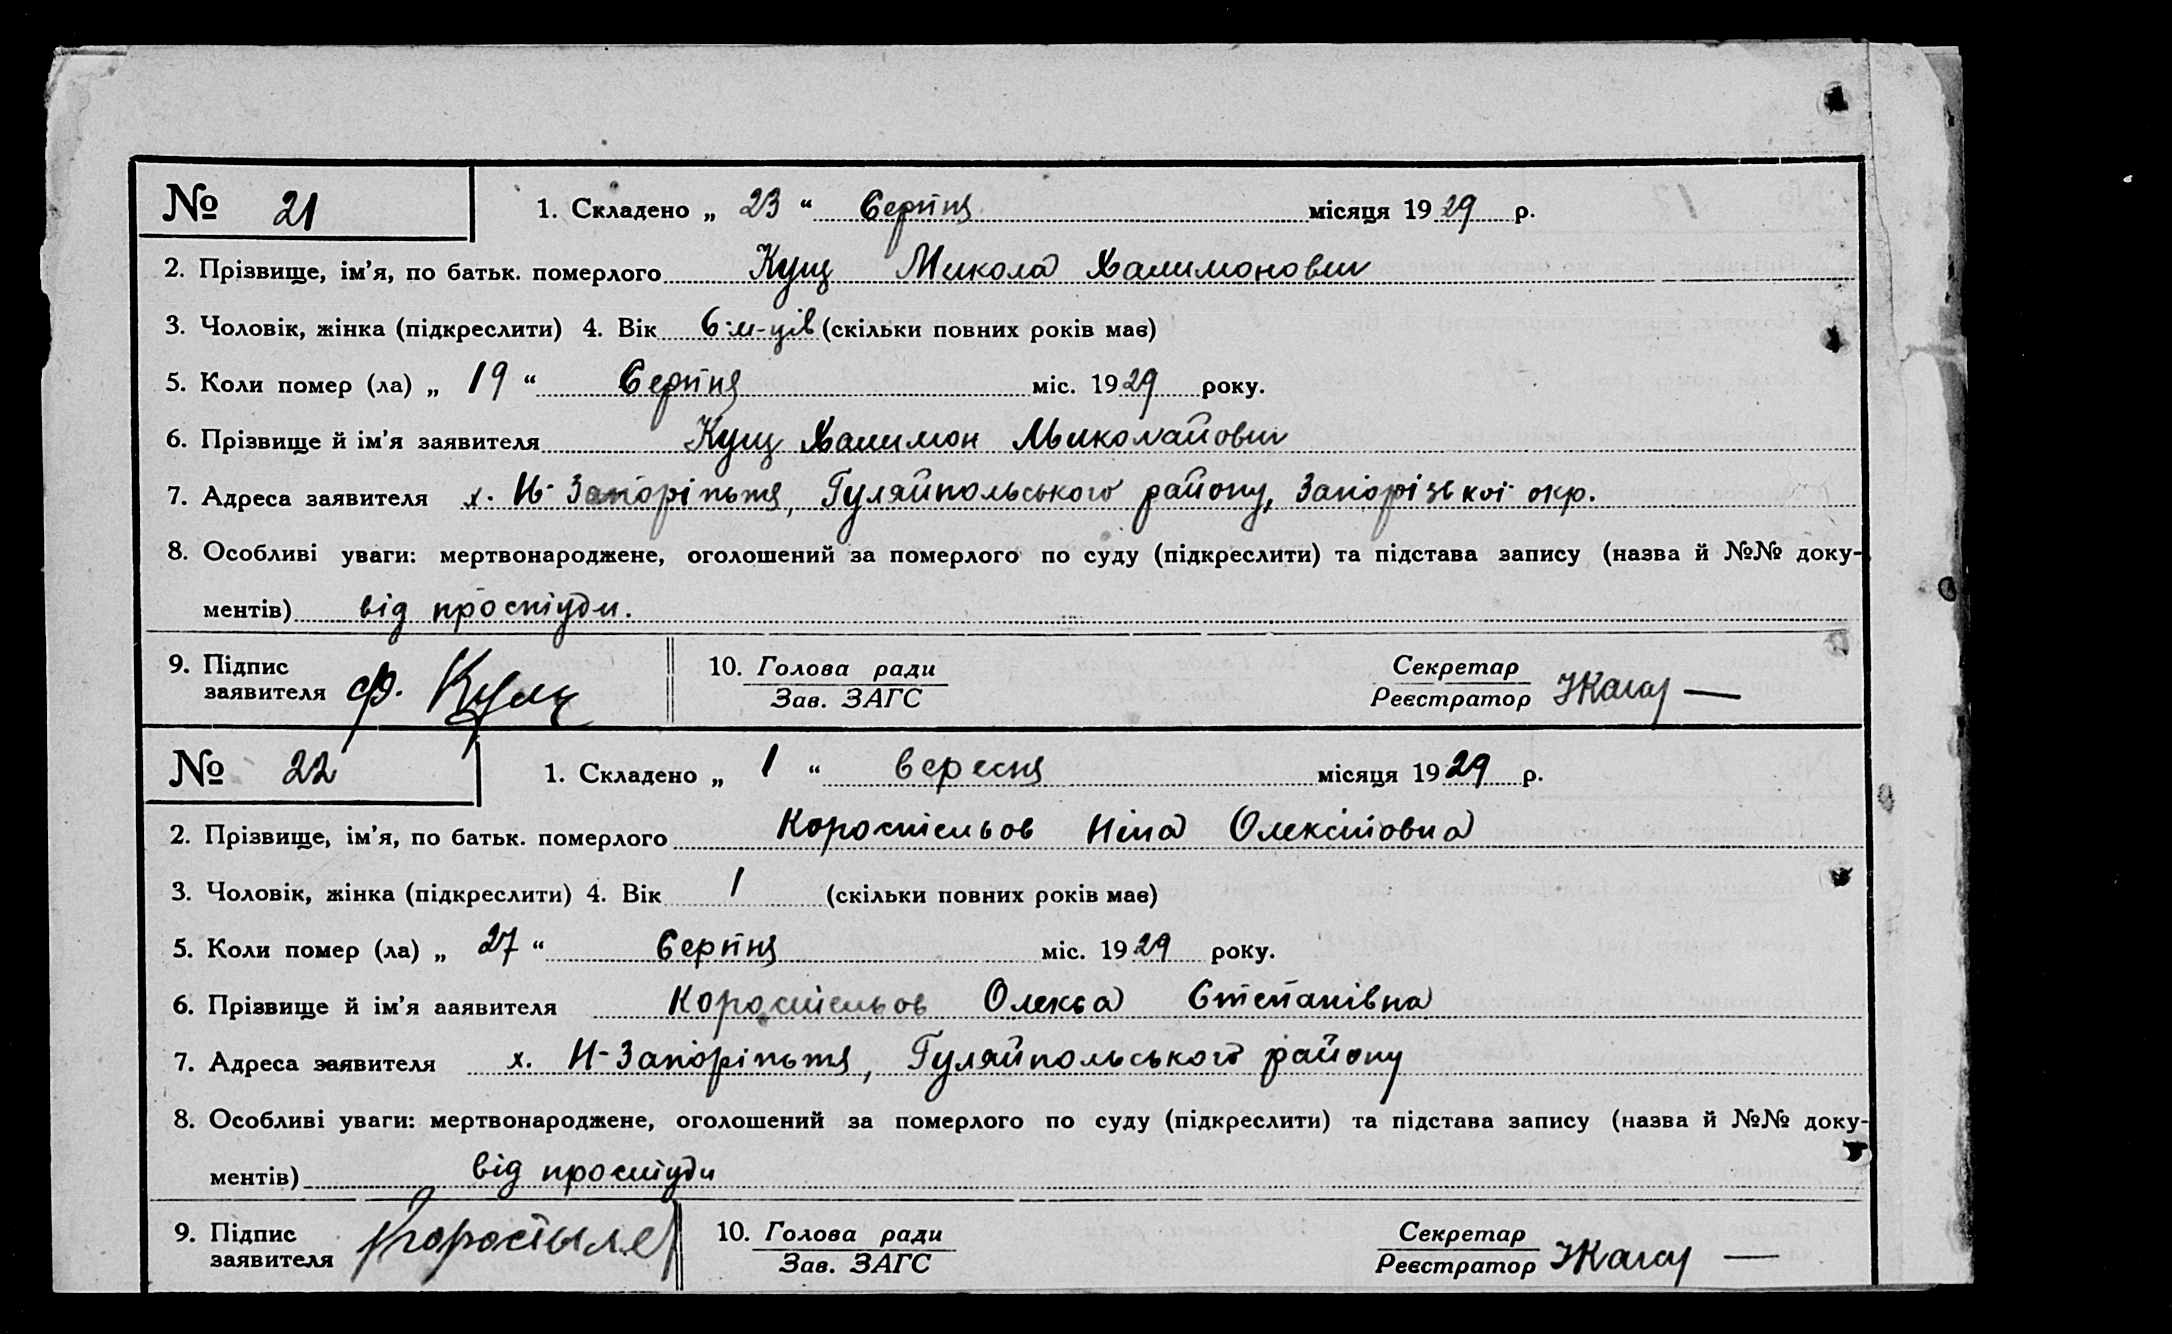 № 21 1. Складено „ 23 “ Серпня місяця 1929 р.
2. Прізвище, ім’я, по батьк. померлого Кущ Микола Халимонович
3. Чоловік, жінка (підкреслити) 4. Вік 6 м-ців (скільки повних років має)
5. Коли помер (ла) „ 19 “ Серпня міс. 1929 року.
6. Прізвище й ім’я заявителя Кущ Халимон Миколайович
7. Адреса заявителя х. Н-Запоріжжя, Гуляйпольського району, Запорізької окр.
8. Особливі уваги: мертвонароджене, оголошений за померлого по суду (підкреслити) та підстава запису (назва й №№ доку-
ментів) від простуди.
9. Підпис заявителя Ф. Кущ 10. Голова ради Секретар
Зав. ЗАГС Реєстратор
№ 22 1. Складено „ 1 “ вересня місяця 1929 р.
2. Прізвище, ім’я, по батьк. померлого Коростільов Ніна Олексійовна
3. Чоловік, жінка (підкреслити) 4. Вік 1 (скільки повних років має)
5. Коли помер (ла) „ 27 “ Серпня міс. 1929 року.
6. Прізвище й ім’я ааявителя Коростільов Олекса Степанівна
7. Адреса заявителя х. Н-Запоріжжя, Гуляйпольського району
8. Особливі уваги: мертвонароджене, оголошений за померлого по суду (підкреслити) та підстава запису (назва й №№ доку-
ментів) від простуди
9. Підпис заявителя 10. Голова ради Секретар
Зав. ЗАГС Реєстратор